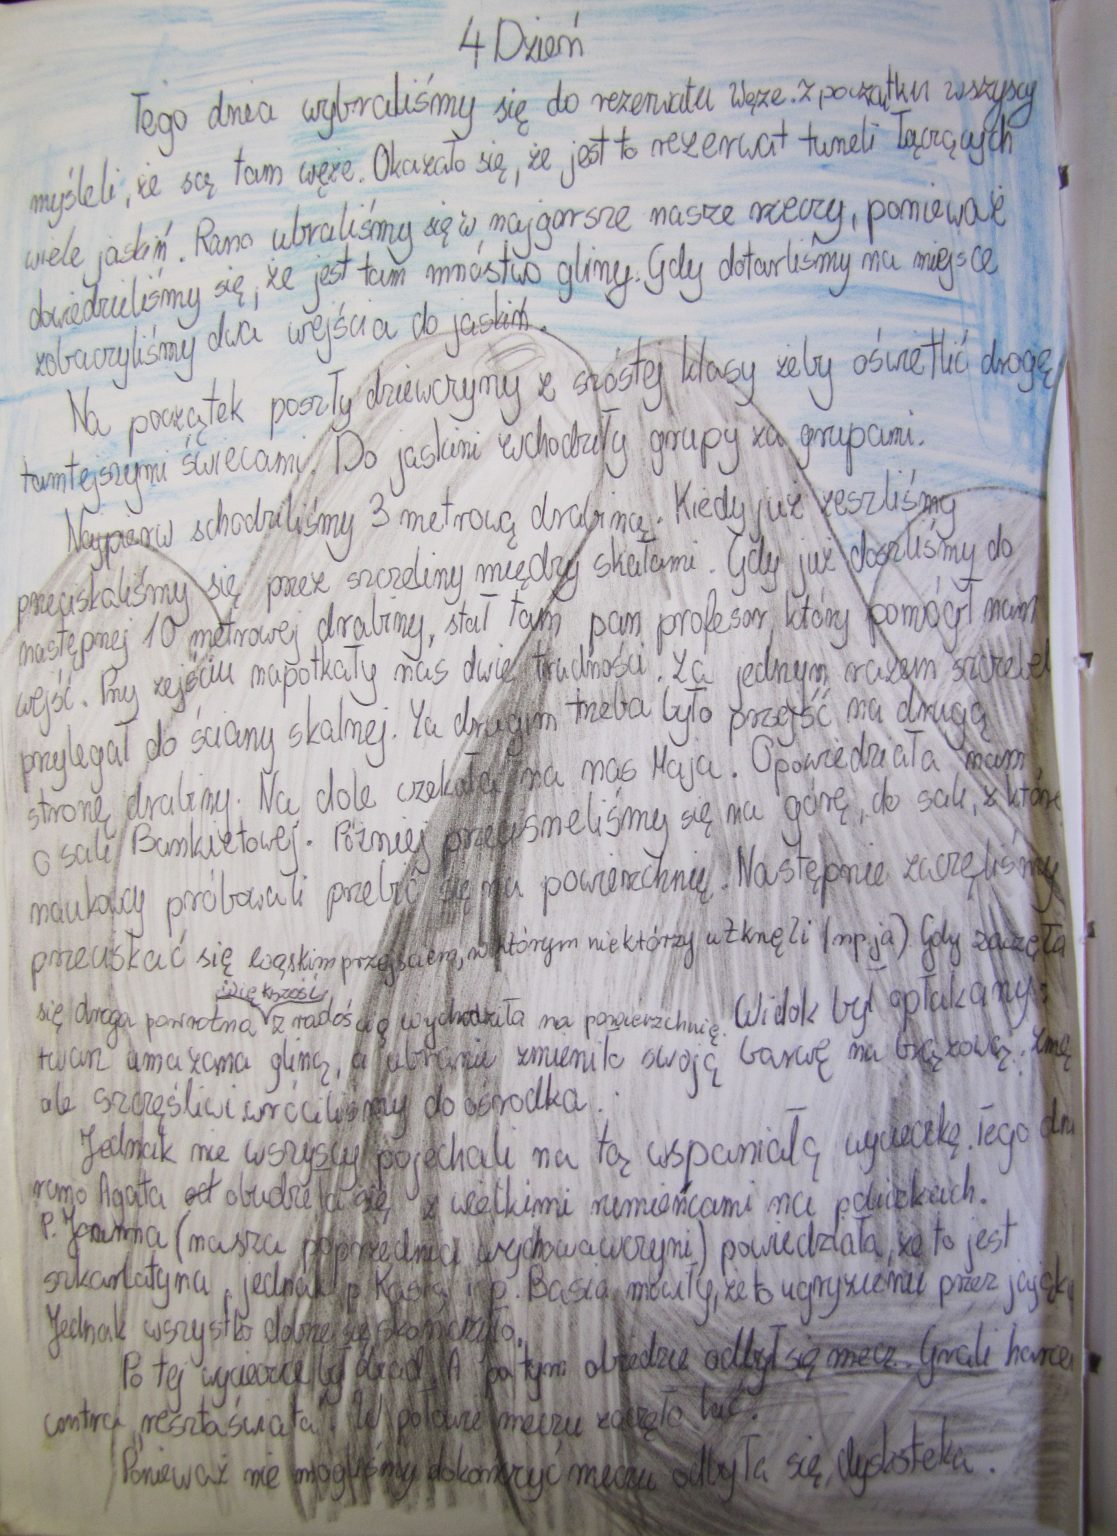 4 Dzień
Tego dnia wybraliśmy się do rezerwatu Węże. Z początku wszyscy
myśleli, że są tam węże. Okazało się, że jest to rezerwat tuneli łączących
wiele jaskiń. Rano ubraliśmy się w najgorsze nasze rzeczy, ponieważ
dowiedzieliśmy się, że jest tam mnóstwo gliny. Gdy dotarliśmy na miejsce
zobaczyliśmy dwa wejścia do jaskiń.
Na początek poszły dziewczyny z szóstej klasy żeby oświetlić drogę
tamtejszymi świecami. Do jaskini wchodziły grupy za grupami.
Najpierw schodziliśmy 3 metrową drabiną. Kiedy już zeszliśmy
przeciskaliśmy się przez szczeliny między skałami. Gdy już doszliśmy do
następnej 10 metrowej drabiny, stał tam pan profesor, który pomógł nam
wejść. Przy zejściu napotkały nas dwie trudności. Za jednym razem szczebel
przylegał do ściany skalnej. Za drugim trzeba było przejść na drugą
stronę drabiny. Na dole czekała na nas Maja. Opowiedziała nam
o sali Bankietowej. Później przecisneliśmy się na górę, do sali, z której
naukowcy próbowali przebić się na powierzchnię. Następnie zaczęliśmy
przeciskać się wąskim przejściem, w którym niektórzy utknęli (np. ja) Gdy zaczęła
się droga powrotna większość z radością wychodziła na powierzchnię. Widok był opłakany:
twarz umazana gliną, a ubranie zmieniło swoją barwę na brązową.
ale szczęśliwi wróciliśmy do ośrodka.
Jednak nie wszyscy pojechali na tą wspaniałą wycieczkę. Tego dnia
rano Agata obudziła się z wielkimi rumieńcami na policzkach.
P. Joanna (nasza poprzednia wychowawczyni) powiedziała, że to jest
szkarlatyna, jednak p. Kasia i p. Basia mówiły, że to ugryzienie przez
Jednak wszystko dobrze się skończyło.
Po tej wycieczce był obiad. A po tym obiedzie odbył się mecz. Grali
contra "reszta świata". W połowie meczu zaczęło lać.
Ponieważ nie mogliśmy dokończyć meczu odbyła się dyskoteka.